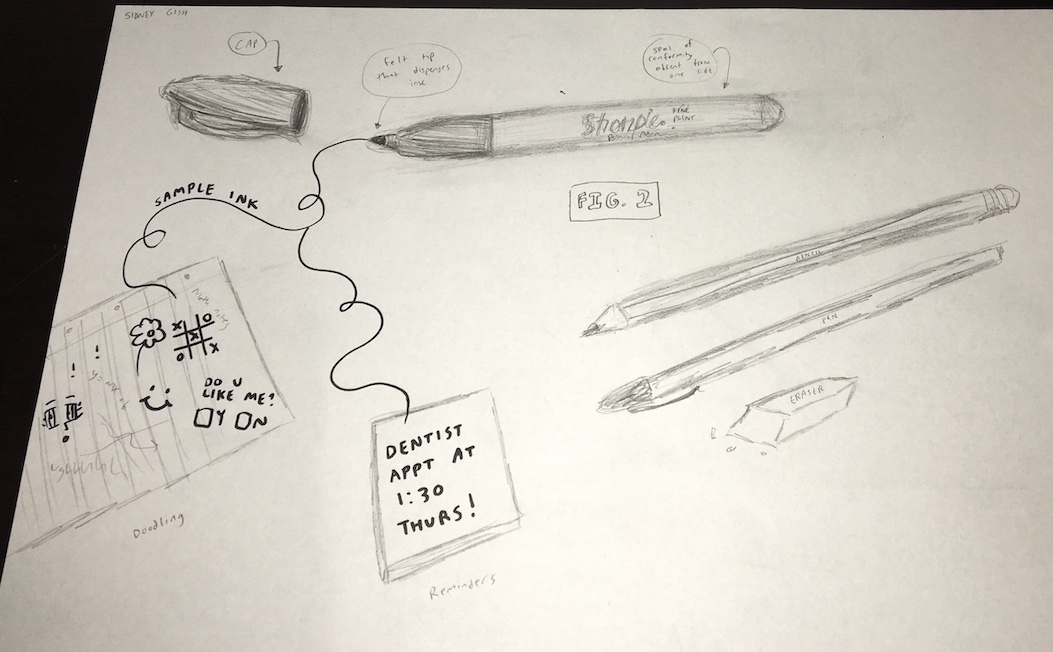 SIDNEY GISH
CAP
felt tip
that dispenses
ink
seal of
conformity
absent from
one side
Sharpie.
FINE
POINT
SAMPLE INK
FIG. 2
PENCIL
PEN
ERASER
DO U
LIKE ME?
Y N
DENTIST
APPT AT
1:30
THURS!
Doodling
Reminders